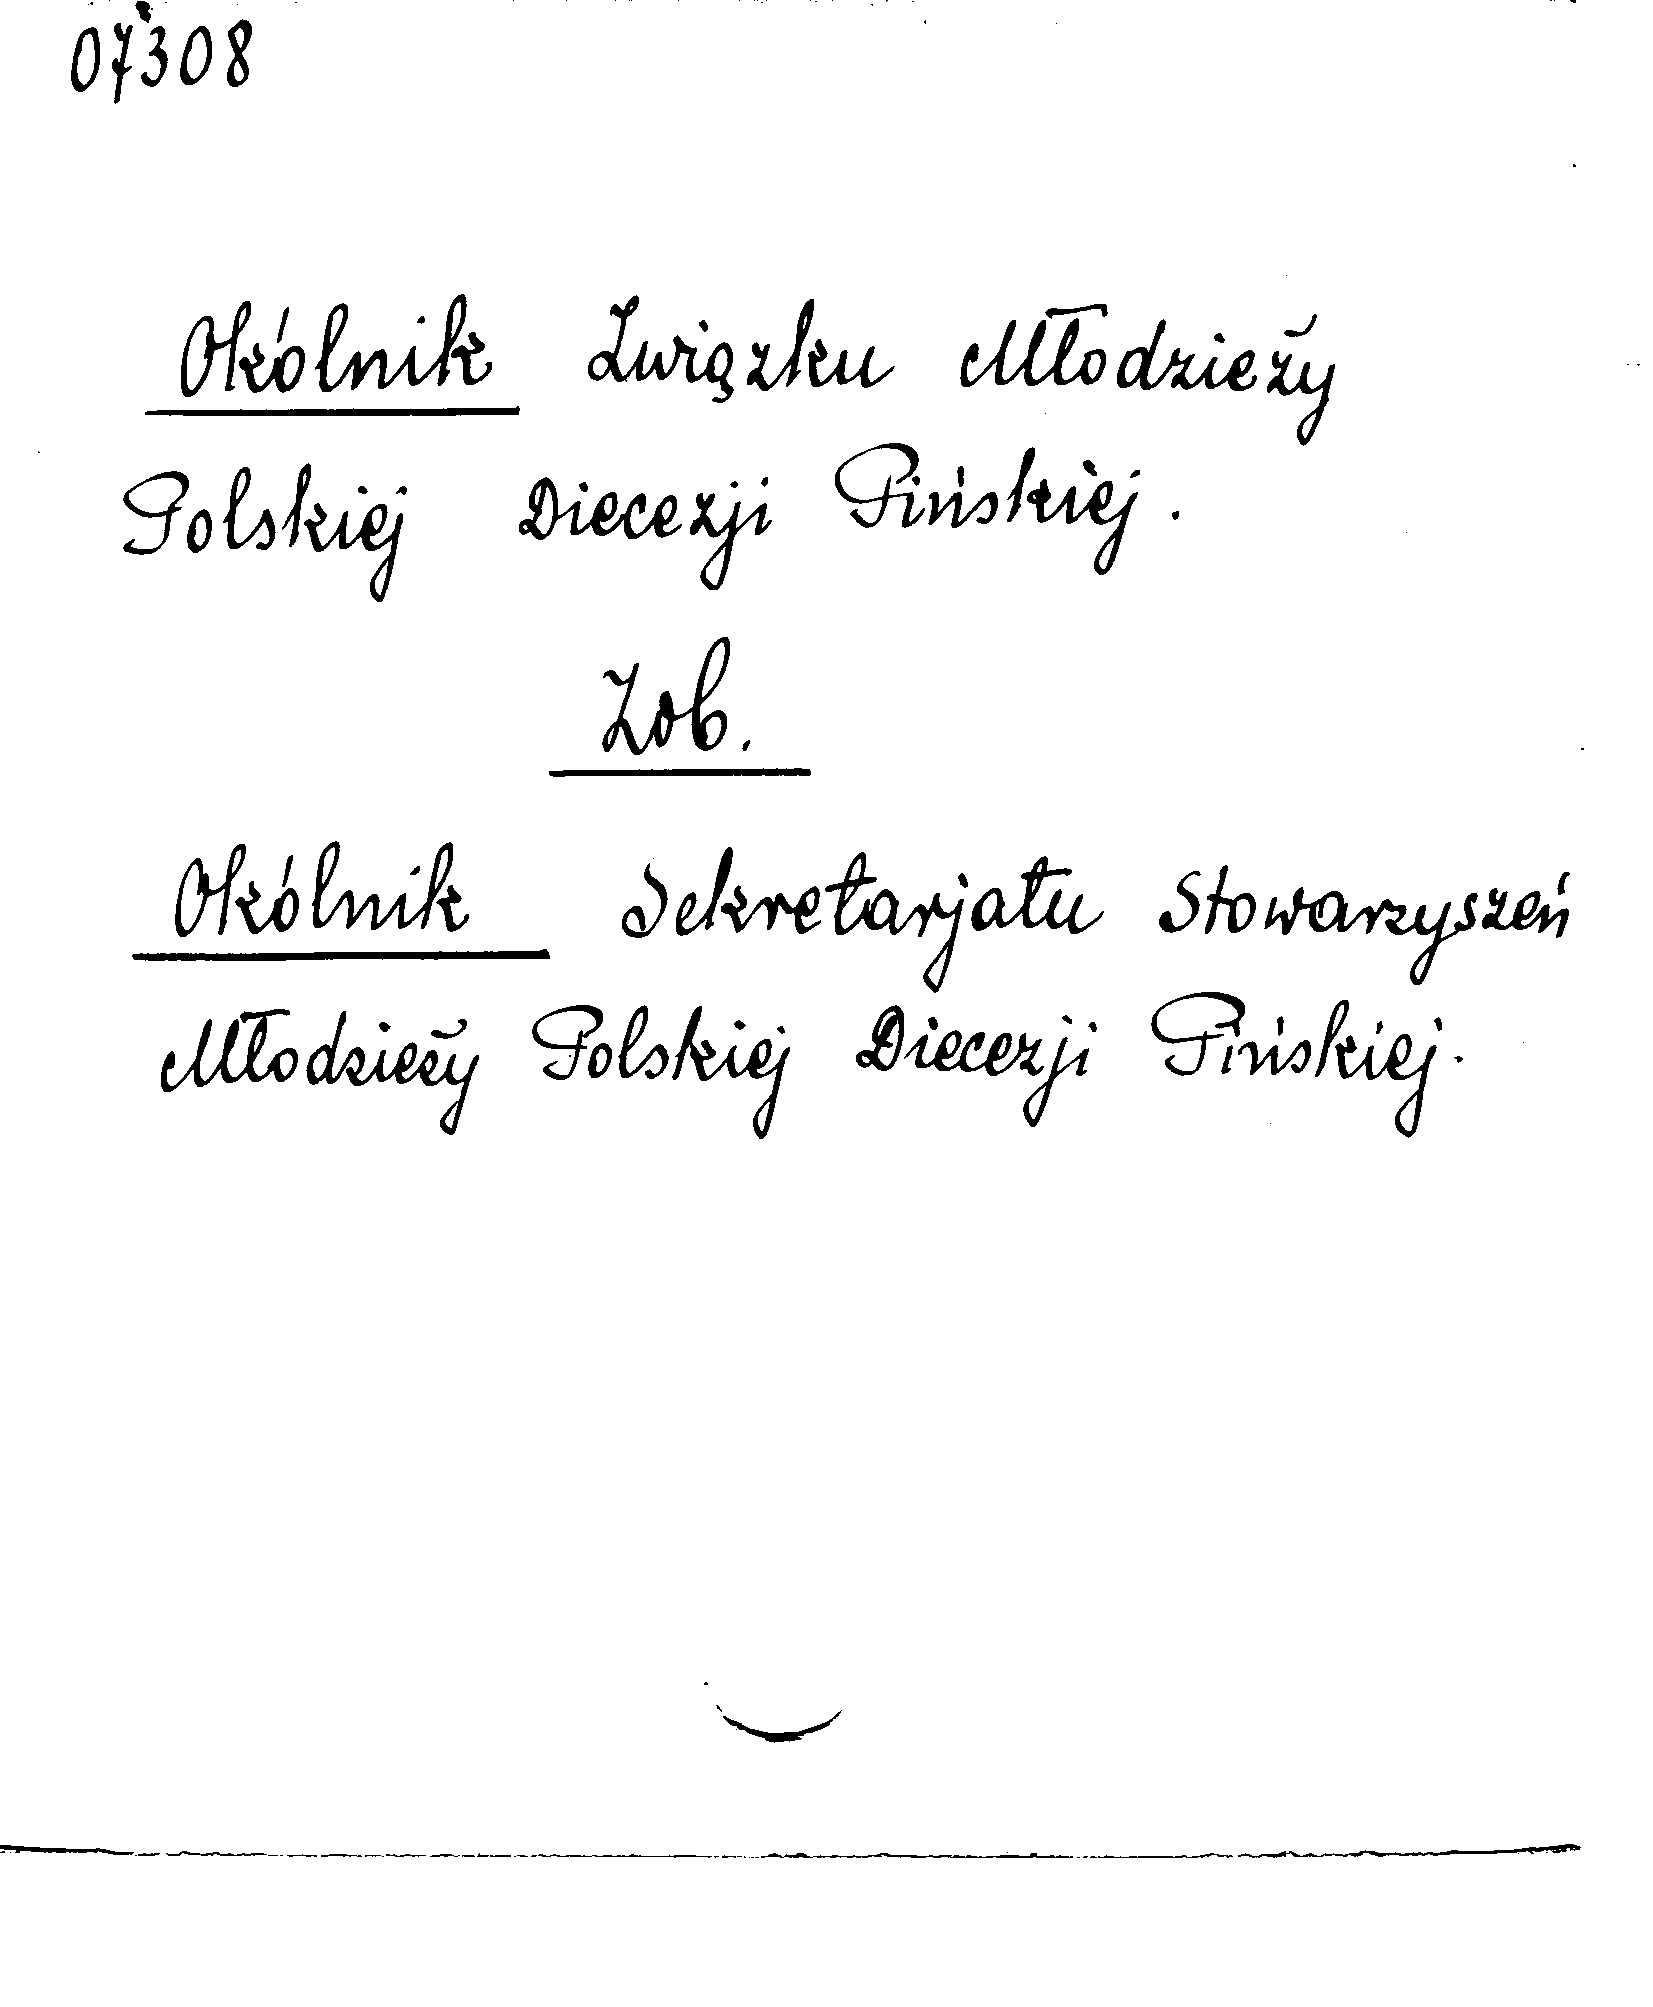 07308
Okólnik Związku Młodzieży
Polskiej Diecezji Pińskiej.
Zob.
Okólnik Sekretarjatu Stowarzyszeń
Młodzieży Polskiej Diecezji Pińskiej.